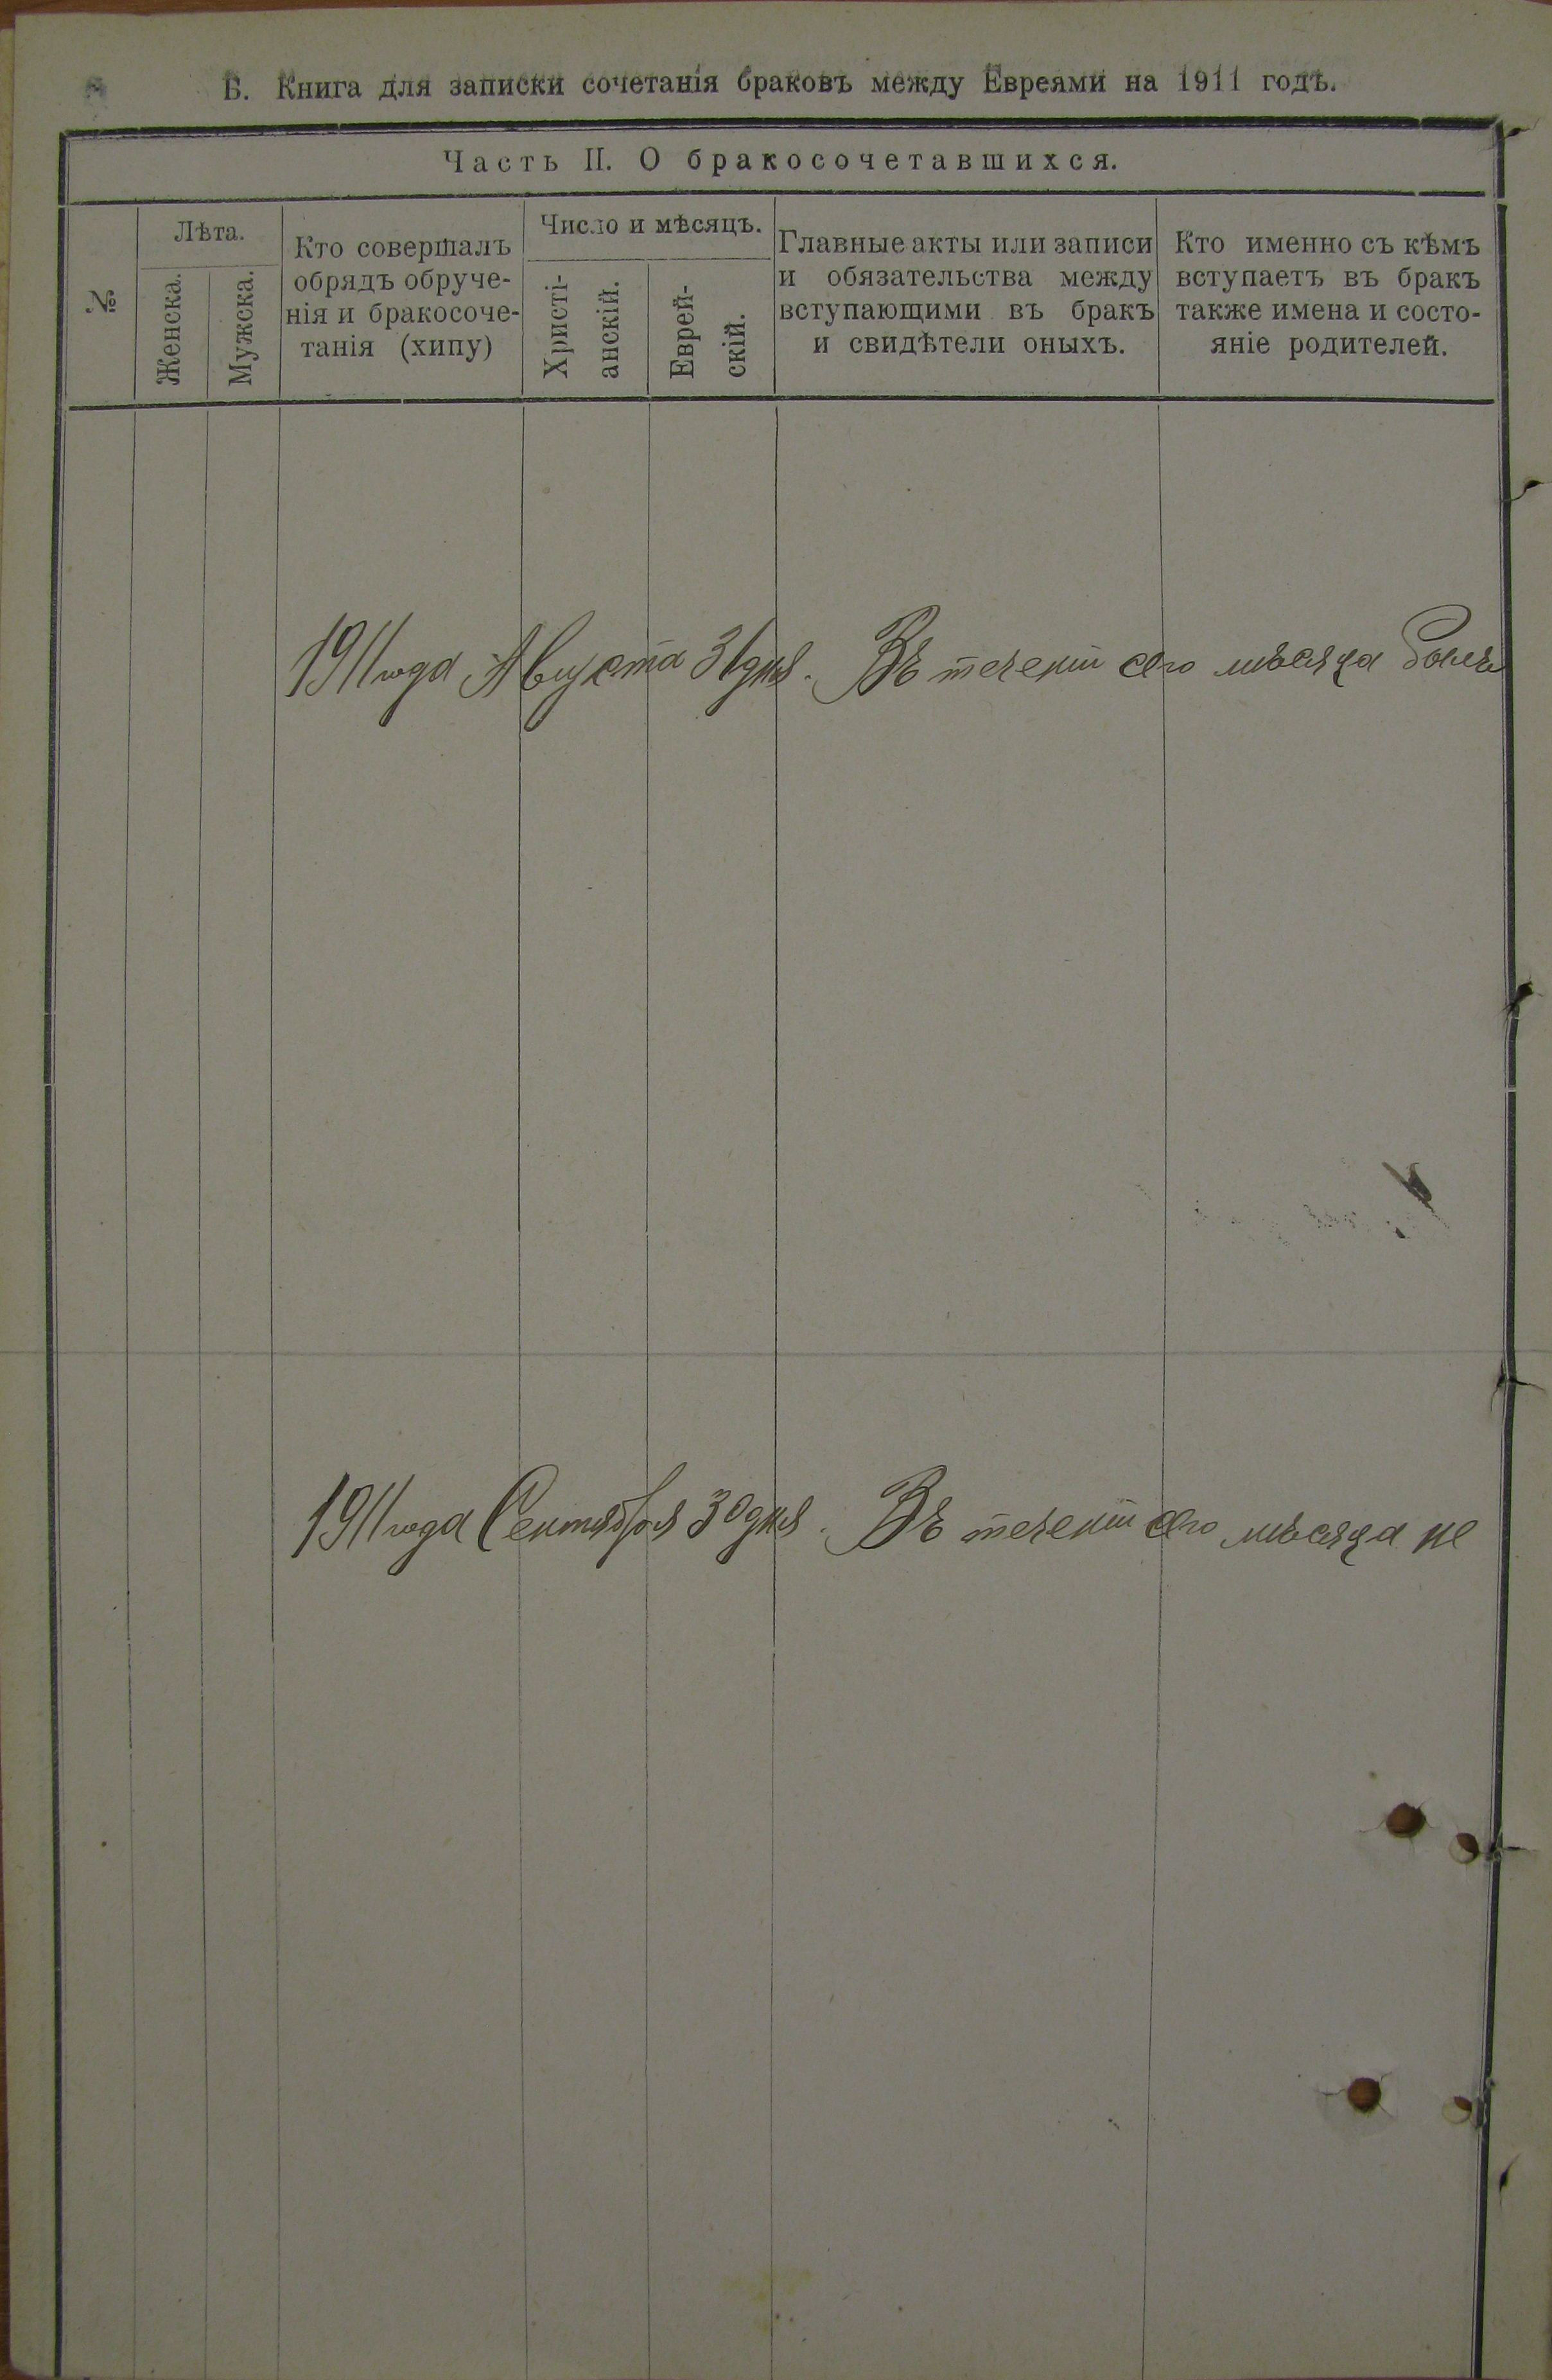 Б. Книга для записки сочетанія браковъ между Евреями на 1911 годъ.
Часть II. О бракосочетавшихся.
№
Лѣта.
Женска.
Мужска.
Кто совершалъ
обрядъ обруче-
нія и бракосоче-
танія (хипу)
Число и мѣсяцъ.
Христі-
анскій.
Еврей-
скій.
Главные акты или записи
и обязательства между
вступающими въ бракъ
и свидѣтели оныхъ.
Кто именно съ кѣмъ
вступаетъ въ бракъ
также имена и состо-
яніе родителей.
1911 года Августа 31 дня. Въ теченіи сего мѣсяца
1911 года Сентября 30 дня. Въ теченіи сего мѣсяца не